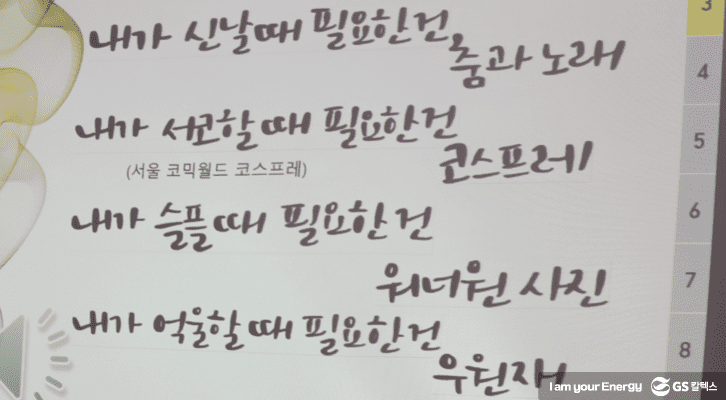 내가 신날때 필요한건,
춤과 노래
내가 서코할때 필요한건
(서울 코믹월드 코스프레)
코스프레
내가 슬플때 필요한건
워너원 사진
내가 억울할때 필요한건
우원재
3
4
5
6
7
8
I am your Energy GS칼텍스